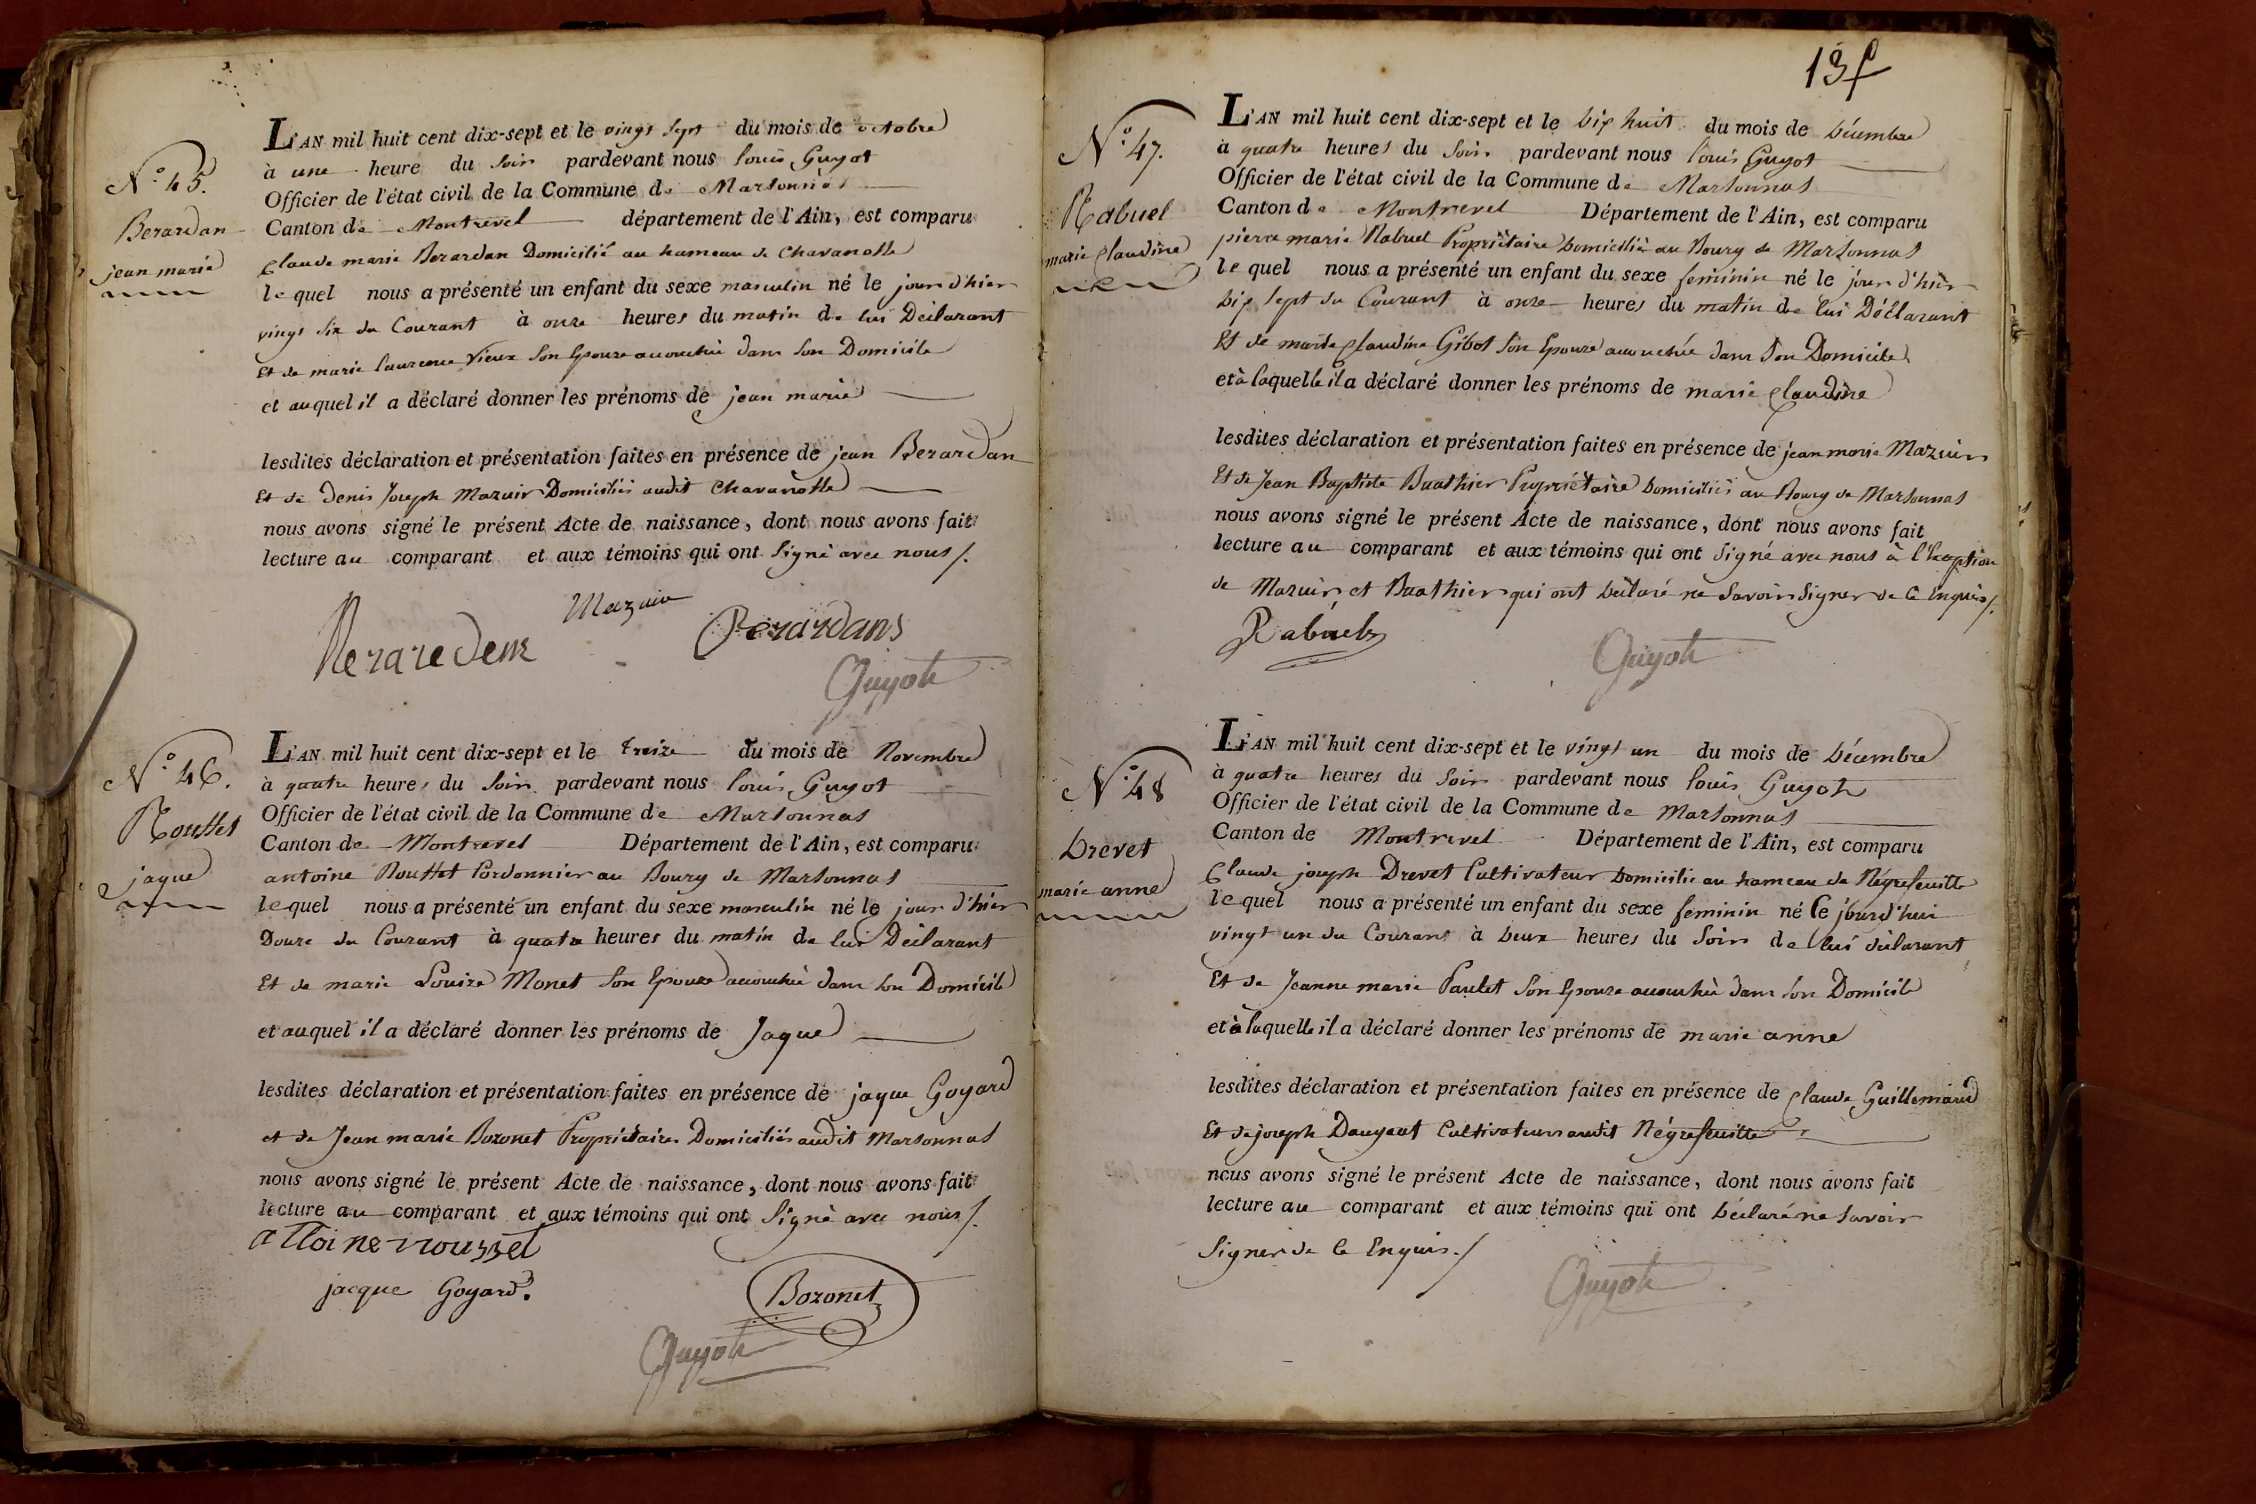 N.º 45.
Berardan
jean marie
L'AN mil huit cent dix-sept et le vingt sept du mois de octobre
à une heure du soir pardevant nous louis Guyot
Officier de l'état civil de la Commune de Marsonnas
Canton de Montrevel département de l'Ain, est comparu
Claude marie Berardan Domicilié au hameau de Chavanolle
lequel nous a présenté un enfant du sexe masculin né le jour d'hier
vingt six du Courant à onze heures du matin de lui Déclarant
Et de marie laurence Vieux son Epouse accouchée dans son Domicile
et auquel il a déclaré donner les prénoms de jean marie
lesdites déclaration et présentation faites en présence de jean Berardan
Et de denis Joseph Mazuir Domiciliés audit Chavanolle
nous avons signé le présent Acte de naissance, dont nous avons fait
lecture au comparant et aux témoins qui ont signé avec nous /.
Mazuir
Berardans
Guyot
N.º 46.
Roussel
jaque
L'AN mil huit cent dix-sept et le treize du mois de Novembre
à quatre heures du soir pardevant nous louis Guyot
Officier de l'état civil de la Commune de Marsonnas
Canton de Montrevel Département de l'Ain, est comparu
antoine Roussel Cordonnier au Bourg de Marsonnas
lequel nous a présenté un enfant du sexe masculin né le jour d'hier
Douze du Courant à quatre heures du matin de lui Déclarant
Et de marie Louise Monet son Epouse accouchée dans son Domicile
et auquel il a déclaré donner les prénoms de Jaque
lesdites déclaration et présentation faites en présence de jaque Goyard
et de Jean marie Bozonet Propriétaires Domiciliés audit Marsonnas
nous avons signé le présent Acte de naissance, dont nous avons fait
lecture au comparant et aux témoins qui ont signé avec nous /.
jacque Goyard.
Bozonet
Guyot
N.º 47.
Rabuel
marie Claudine
L'AN mil huit cent dix-sept et le dix huit du mois de décembre
à quatre heures du soir pardevant nous louis Guyot
Officier de l'état civil de la Commune de Marsonnas
Canton de Montrevel Département de l'Ain, est comparu
pierre marie Rabuel Propriétaire domicilié au Bourg de Marsonnas
lequel nous a présenté un enfant du sexe feminin né le jour d'hier
dix sept du Courant à onze heures du matin de lui Déclarant
Et de marie Claudine Gibot son Epouse accouchée dans son Domicile
et à laquelle il a déclaré donner les prénoms de marie Claudine
lesdites déclaration et présentation faites en présence de jean marie Mazuir
Et de Jean Baptiste Buathier Propriétaire domiciliés au Bourg de Marsonnas
nous avons signé le présent Acte de naissance, dont nous avons fait
lecture au comparant et aux témoins qui ont signé avec nous à l'Exception
de Mazuir et Buathier qui ont déclaré ne savoir signer de ce Enquis /.
Rabuel
Guyot
N.º 48
Drevet
marie anne
L'AN mil huit cent dix-sept et le vingt un du mois de décembre
à quatre heures du soir pardevant nous louis Guyot
Officier de l'état civil de la Commune de Marsonnas
Canton de Montrevel Département de l'Ain, est comparu
Claude joseph Drevet Cultivateur domicilié au hameau de Négrefeuille
lequel nous a présenté un enfant du sexe feminin né ce jourd'hui
vingt un du Courant à deux heures du soir de lui déclarant
Et de Jeanne marie Paulet son Epouse accouchée dans son Domicile
et à laquelle il a déclaré donner les prénoms de marie anne
lesdites déclaration et présentation faites en présence de Claude Guillemaud
Et de joseph Daujeat Cultivateurs audit Négrefeuille
nous avons signé le présent Acte de naissance, dont nous avons fait
lecture au comparant et aux témoins qui ont déclaré ne savoir
signer de ce Enquis. /
Guyot